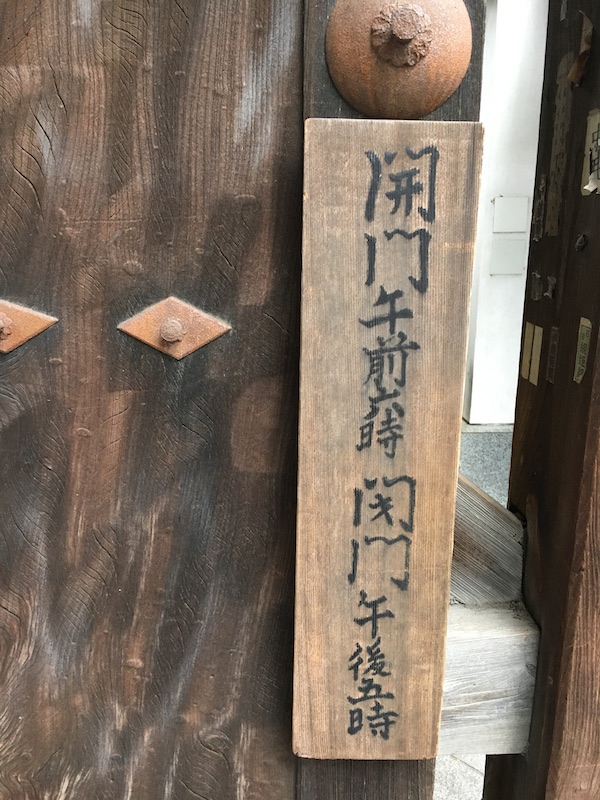 開門午前六時閉門午後五時